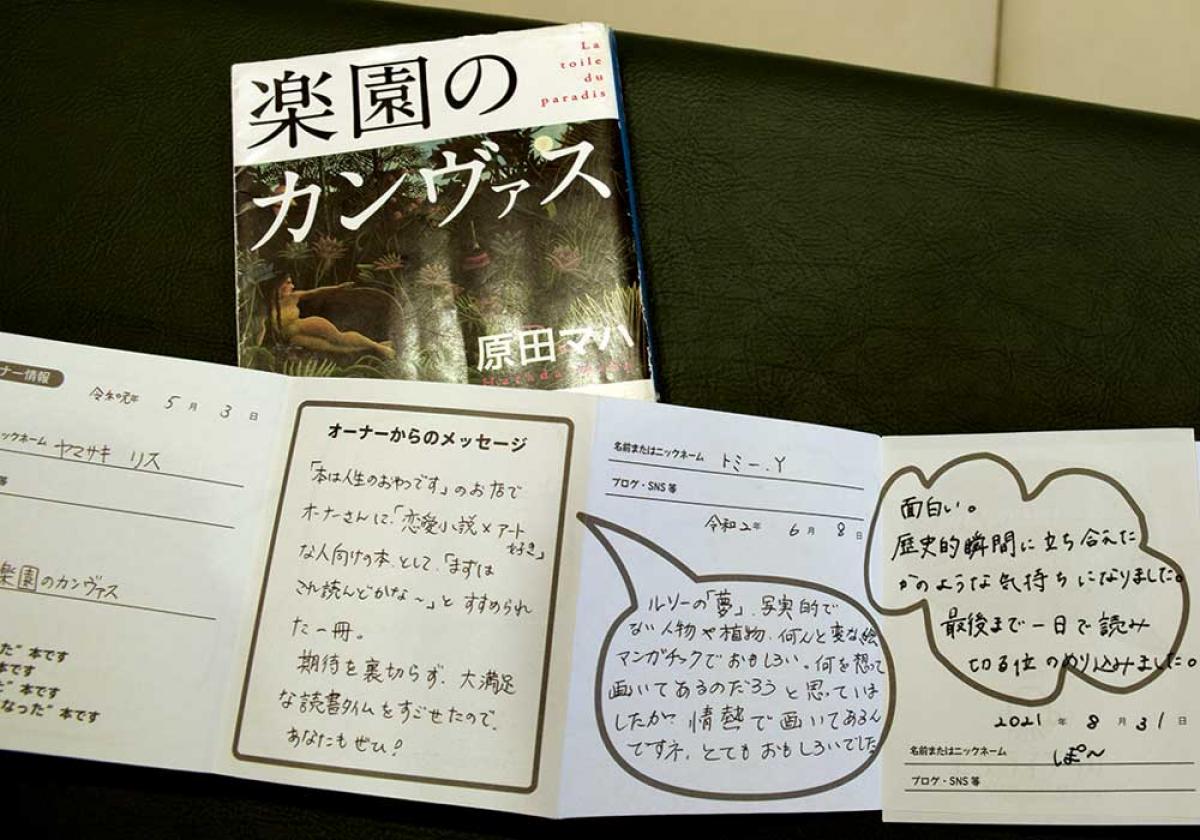 楽園の
カンヴァス
La
toile
du
paradis
原田マハ
ナー情報
令和元年 5月3日
ックネーム ヤマサキ リス
等
楽園のカンヴァス
た"本です
本です
"本です
なった"本です
オーナーからのメッセージ
「本は人生のおやつです」のお店で
オーナーさんに「恋愛小説×アート好き」
な人向けの本として、「まずは
これ読んどかな～」とすすめられ
た一冊。
期待を裏切らず、大満足
な読書タイムをすごせたので、
あなたもぜひ!
名前またはニックネーム トミー.Y
ブログ・SNS等
令和2年 6月8日
ルソーの「夢」、写実的で
ない人物や植物、何んと変な絵
マンガチックでおもしろい。何を想って
画いてあるのだろうと思っていま
したが 情熱で画いてあるん
ですネ、とてもおもしろいでした
面白い。
歴史的瞬間に立ち合えた
かのような気持ちになりました。
最後まで一日で読み
切る位のめり込みました。
2021年 8月31日
名前またはニックネーム ぽ～
ブログ・SNS等